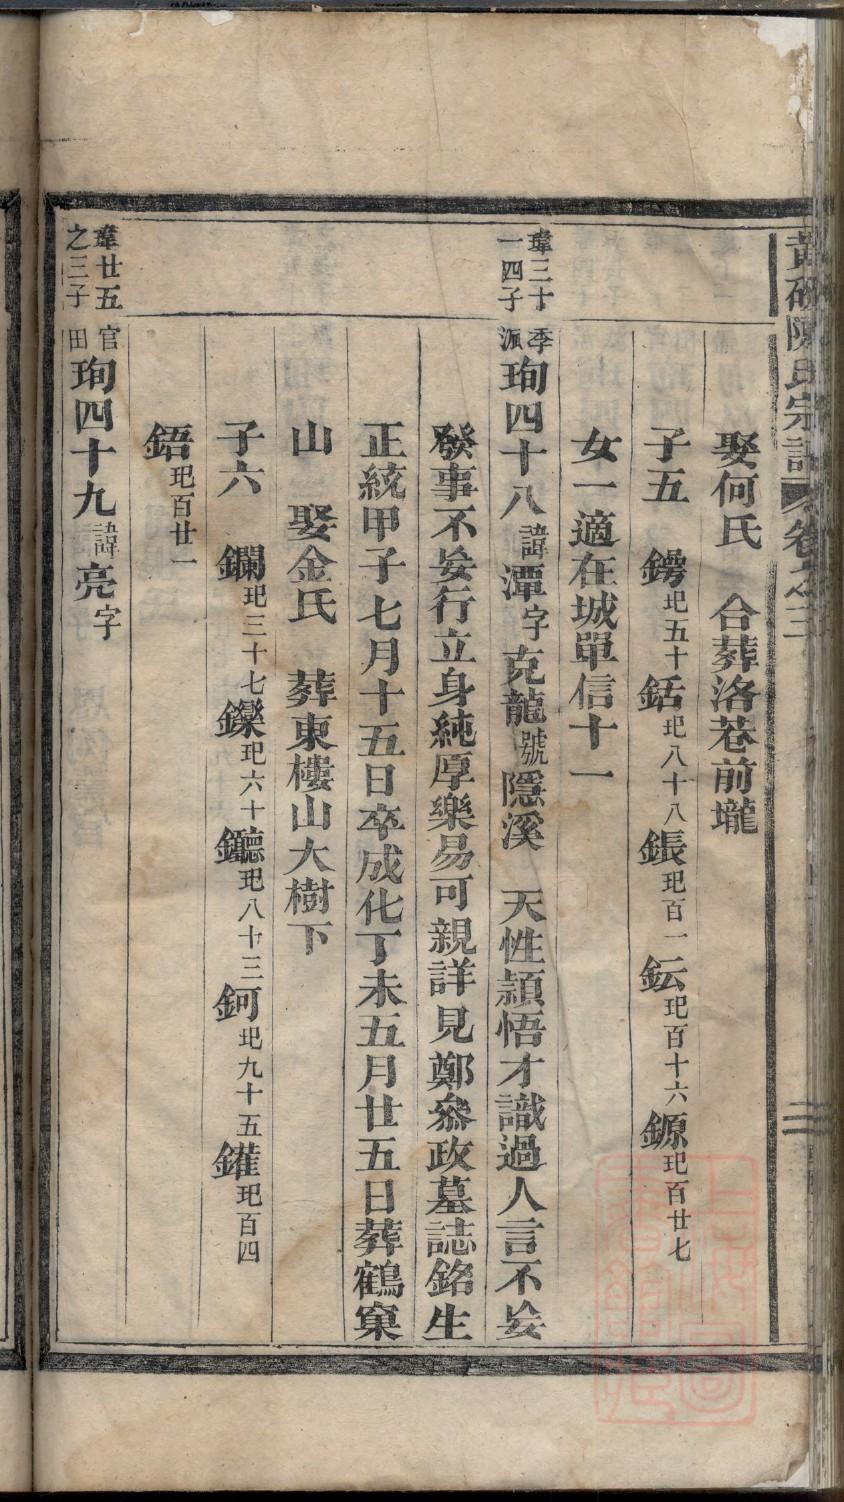 陳氏宗譜 卷之三
娶何氏 合葬洛巷前壠
子五 鐒玘五十 銛玘八十八 鋹玘百一 鈜玘百十六 鎯玘百廿七
女一適在城單信十一
瑋三十一四子 季派 珣四十八 諱潭字克龍號隱溪 天性穎悟才識過人言不妄
發事不妄行立身純厚樂易可親詳見鄭叅政墓誌銘生
正統甲子七月十五日卒成化丁未五月廿五日葬鶴窠
山 娶金氏 葬東樓山大樹下
子六 鑭玘三十七 鑠玘六十 鐻玘八十三 鈳玘九十五 鑵玘百四
鋙玘百廿一
瑋廿五之三子 官田 珣四十九 諱亮字